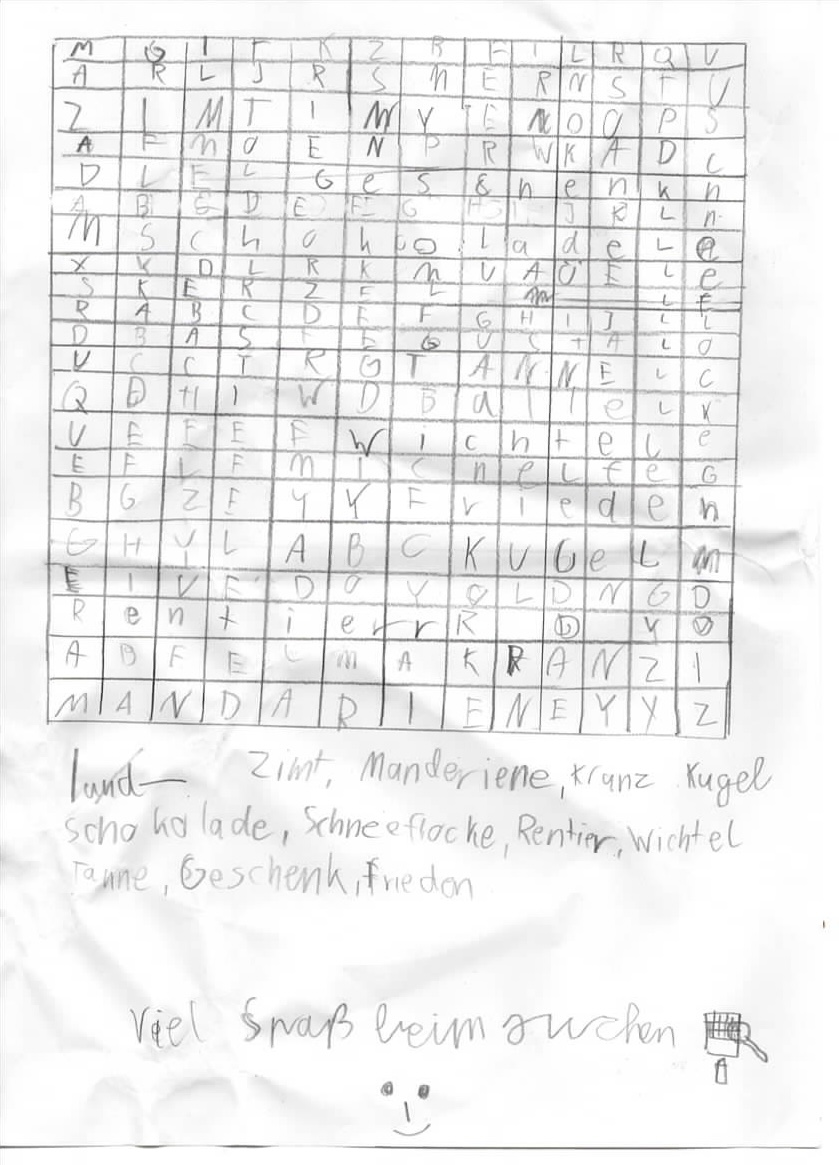 M G I F K Z B F I L R Q V
A R L J R S M E R N S T U
Z I M T I M Y E N O O P S
A F M O E N P R W K A D C
D L E L G e S & n e n k n
A B E D E E G H I J K L n
M S c h o k o l a d e L e
X K D L R K M U A Ö E L e
S K E R Z E L m L F
R A B C D E F G H I J L L
D B A S F E G U S t A L O
V C C T R G T A N N E L C
Q D H I W D B a l l e L K
U E E E F W i c h t e l e
E F L F M i C h e L f e G
B G Z E Y Y F r i e d e n
G H Y L A B C K U G e L M
E I V E D O Y O L D N G D
R e n t i e r r R D Y O
A B F E L M A K R A N Z I
M A N D A R I E N E Y Y Z
Zimt, Manderiene, Kranz Kugel
Schokolade, Schneeflocke, Rentier, Wichtel
Tanne, Geschenk, Frieden
Viel Spaß beim suchen